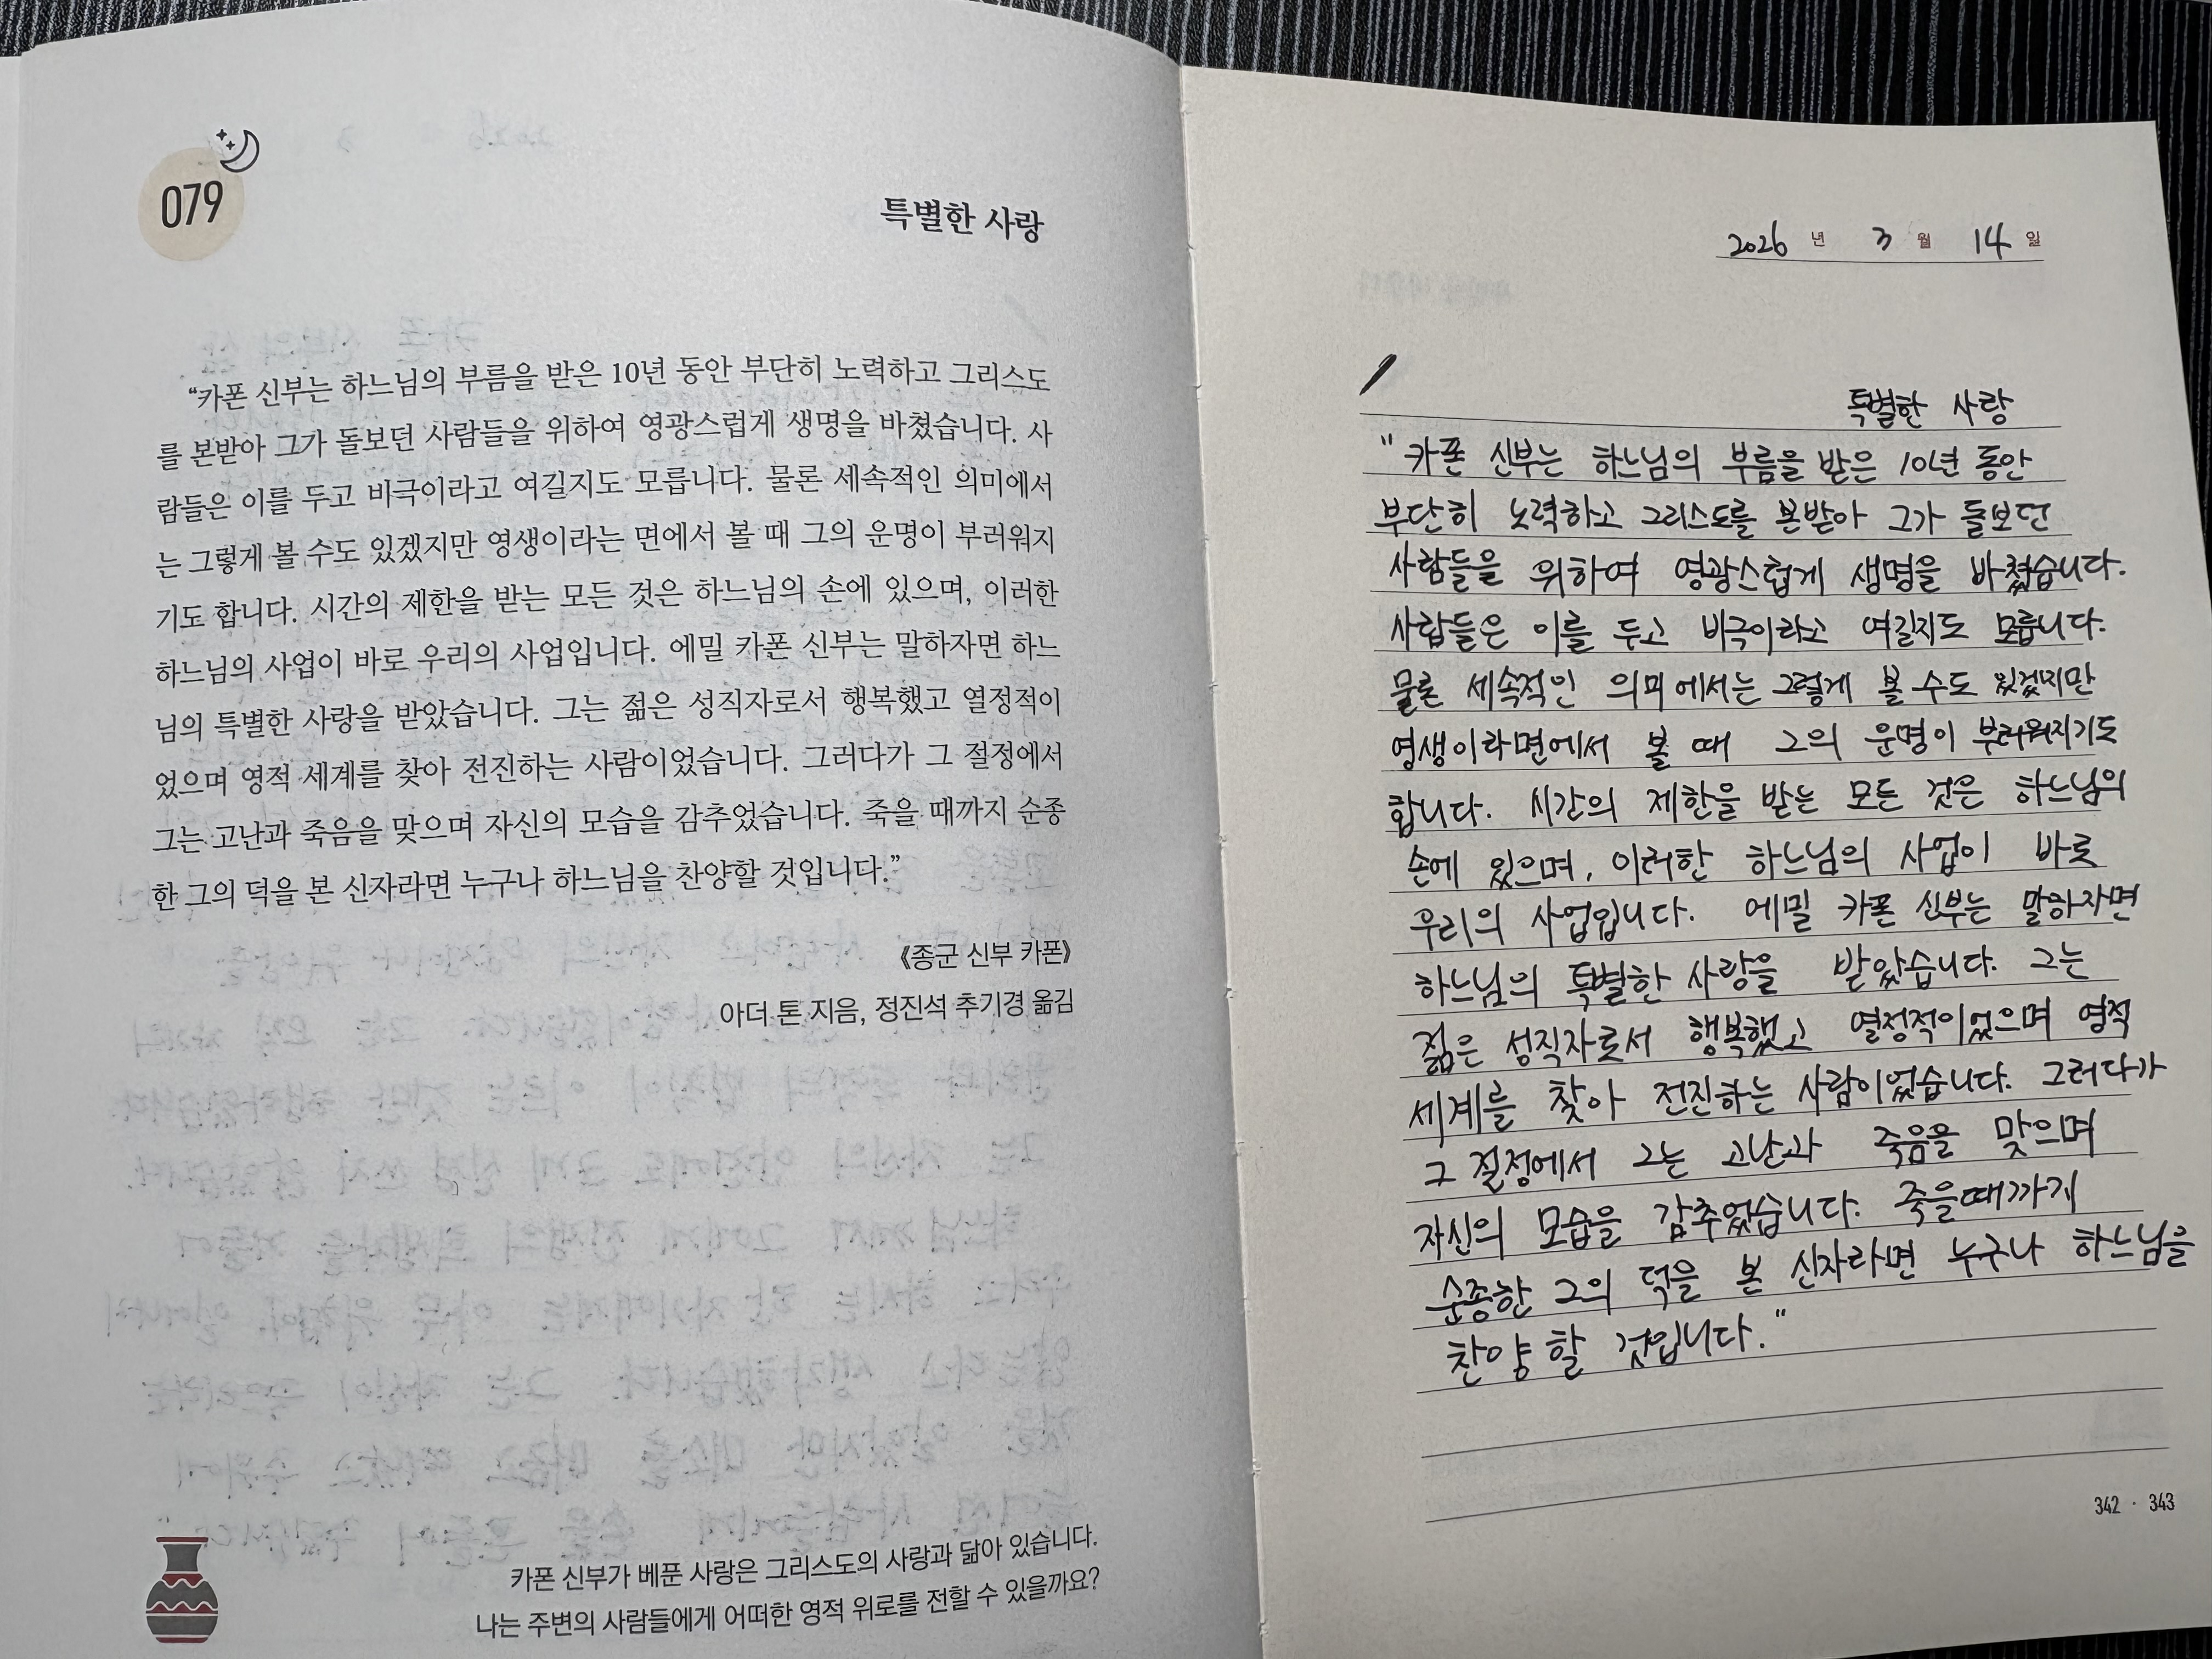 079
특별한 사랑
“카폰 신부는 하느님의 부름을 받은 10년 동안 부단히 노력하고 그리스도
를 본받아 그가 돌보던 사람들을 위하여 영광스럽게 생명을 바쳤습니다. 사
람들은 이를 두고 비극이라고 여길지도 모릅니다. 물론 세속적인 의미에서
는 그렇게 볼 수도 있겠지만 영생이라는 면에서 볼 때 그의 운명이 부러워지
기도 합니다. 시간의 제한을 받는 모든 것은 하느님의 손에 있으며, 이러한
하느님의 사업이 바로 우리의 사업입니다. 에밀 카폰 신부는 말하자면 하느
님의 특별한 사랑을 받았습니다. 그는 젊은 성직자로서 행복했고 열정적이
었으며 영적 세계를 찾아 전진하는 사람이었습니다. 그러다가 그 절정에서
그는 고난과 죽음을 맞으며 자신의 모습을 감추었습니다. 죽을 때까지 순종
한 그의 덕을 본 신자라면 누구나 하느님을 찬양할 것입니다.”
《종군 신부 카폰》
아더 톤 지음, 정진석 추기경 옮김
카폰 신부가 베푼 사랑은 그리스도의 사랑과 닮아 있습니다.
나는 주변의 사람들에게 어떠한 영적 위로를 전할 수 있을까요?
2026 년 3 월 14 일
특별한 사랑
"카폰 신부는 하느님의 부름을 받은 10년 동안
부단히 노력하고 그리스도를 본받아 그가 돌보던
사람들을 위하여 영광스럽게 생명을 바쳤습니다.
사람들은 이를 두고 비극이라고 여길지도 모릅니다.
물론 세속적인 의미에서는 그렇게 볼 수도 있겠지만
영생이라면에서 볼 때 그의 운명이 부러워지기도
합니다. 시간의 제한을 받는 모든 것은 하느님의
손에 있으며, 이러한 하느님의 사업이 바로
우리의 사업입니다. 에밀 카폰 신부는 말하자면
하느님의 특별한 사랑을 받았습니다. 그는
젊은 성직자로서 행복했고 열정적이었으며 영적
세계를 찾아 전진하는 사람이었습니다. 그러다가
그 절정에서 그는 고난과 죽음을 맞으며
자신의 모습을 감추었습니다. 죽을때까지
순종한 그의 덕을 본 신자라면 누구나 하느님을
찬양할 것입니다."
342 · 343